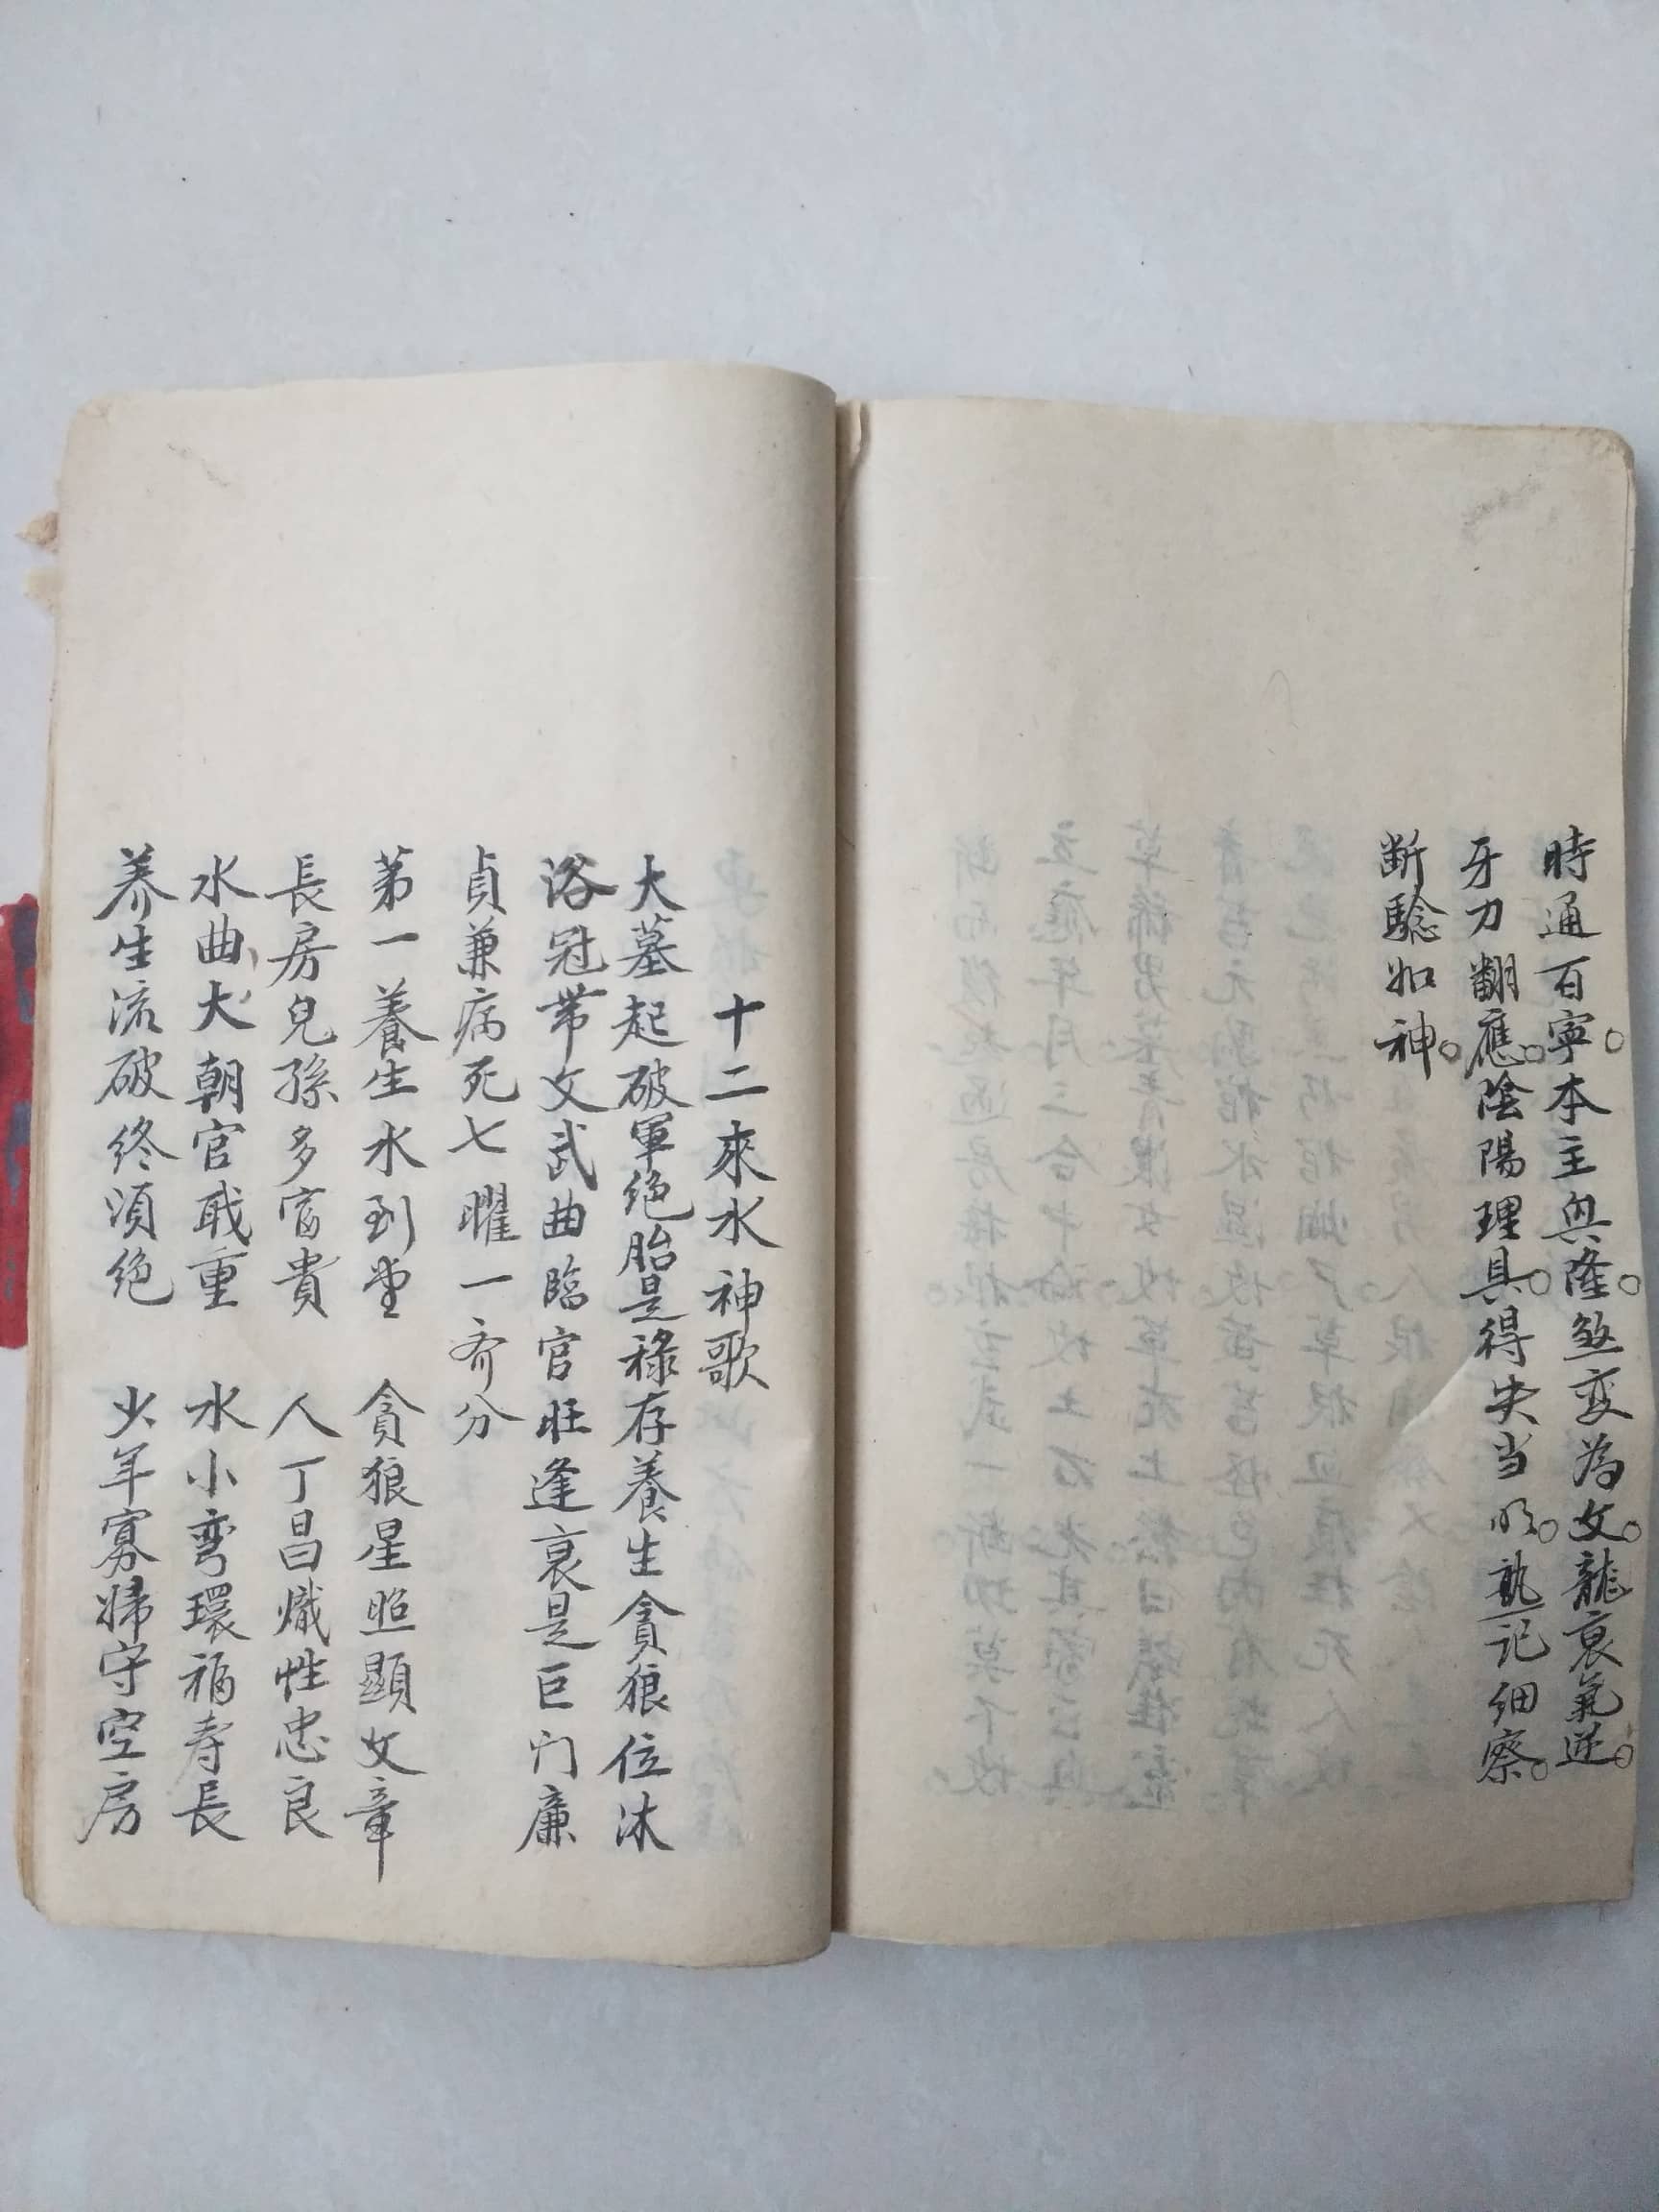 時通百寧。本主與隆。煞変為文。龍衰氣逆。
牙刀翻應。陰陽理具。得失当明。熟記細察。
断騐如神。
十二來水神歌
大墓起破軍絕胎是祿存養生貪狼位沐
浴冠帯文武曲臨官旺逢衰是巨门廉
貞兼病死七曜一齐分
苐一養生水到堂　貪狼星照顯文章
長房兒孫多富貴　人丁昌熾性忠良
水曲大朝官戢重　水小弯環福寿長
养生流破终須绝　少年寡婦守空房